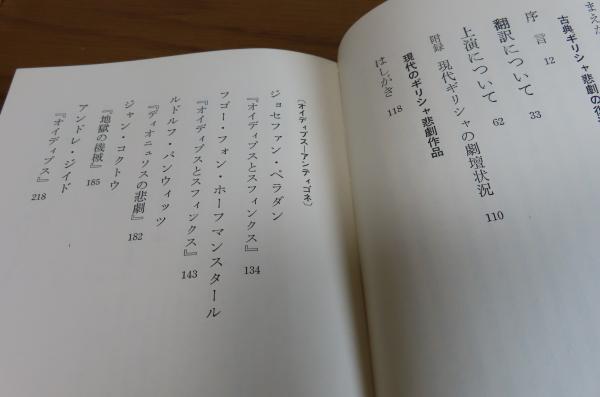 まえが
古典ギリシャ悲劇の復
序言 12
翻訳について 33
上演について 62
附録 現代ギリシャの劇壇状況 110
現代のギリシャ悲劇作品
はしがき 118
〔オイディプス―アンティゴネ〕
ジョセファン・ペラダン
『オイディプスとスフィンクス』 134
フゴー・フォン・ホーフマンスタール
『オイディプスとスフィンクス』 143
ルドルフ・パンウィッツ
『ディオニュソスの悲劇』 182
ジャン・コクトウ
『地獄の機械』 185
アンドレ・ジイド
『オイディプス』 218